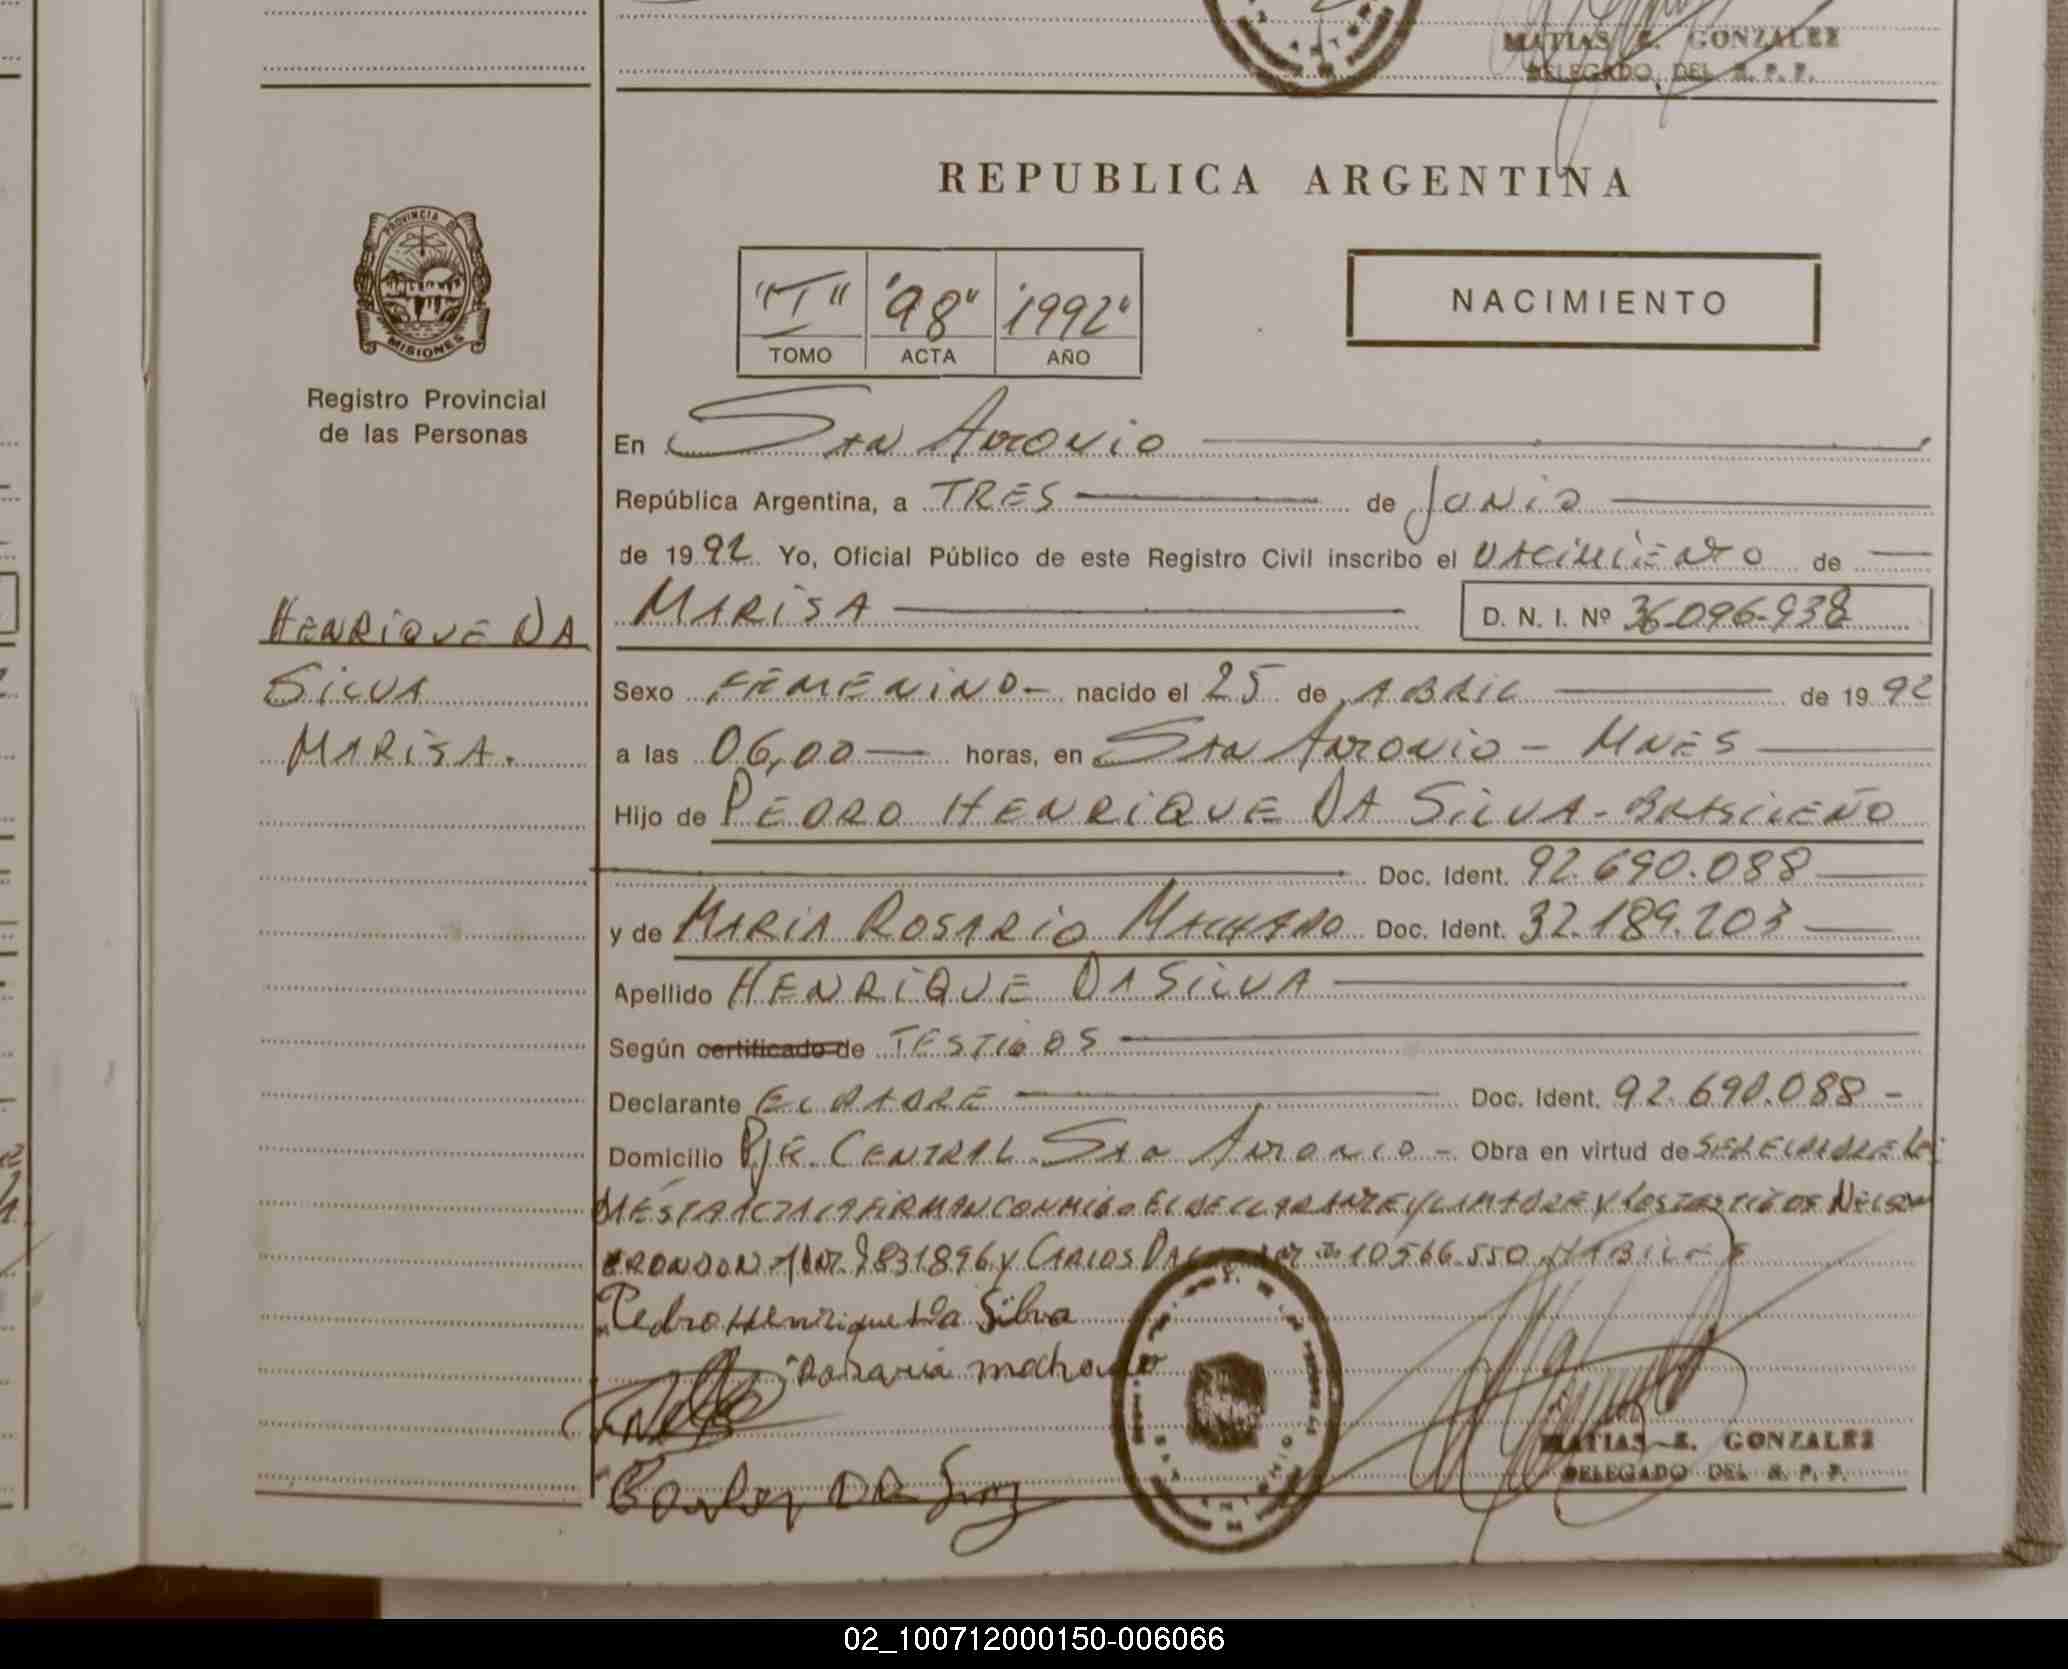 MATIAS E. GONZALEZ
DELEGADO DEL R. P. P.
REPUBLICA ARGENTINA
PROVINCIA DE
MISIONES
Registro Provincial
de las Personas
"T" "98" "1992"
TOMO ACTA AÑO
NACIMIENTO
En San Antonio
República Argentina, a TRES de Junio
de 1992 Yo, Oficial Público de este Registro Civil inscribo el NACIMIENTO de
MARISA D. N. I. Nº 36.096.938
HENRIQUE DA
SILVA
MARISA.
Sexo FEMENINO- nacido el 25 de ABRIL de 1992
a las 06,00 horas, en San Antonio - MNES
Hijo de PEDRO HENRIQUE DA SILVA - BRASILEÑO
Doc. Ident. 92.690.088
y de MARIA ROSARIO MACHADO Doc. Ident. 32.189.203
Apellido HENRIQUE DA SILVA
Según certificado de TESTIGOS
Declarante EL PADRE Doc. Ident. 92.690.088 -
Domicilio PJE. CENTRAL San Antonio - Obra en virtud de SER EL PADRE LEI
DA ESTA ACTA LA FIRMAN CONMIGO EL DECLARANTE Y LA MADRE Y LOS TESTIGOS NELSON
7831896 y CARLOS 10.566.550 HABILES
Pedro Henrique da Silva
Rosaria machado
MATIAS E. GONZALEZ
DELEGADO DEL R. P. P.
02_100712000150-006066